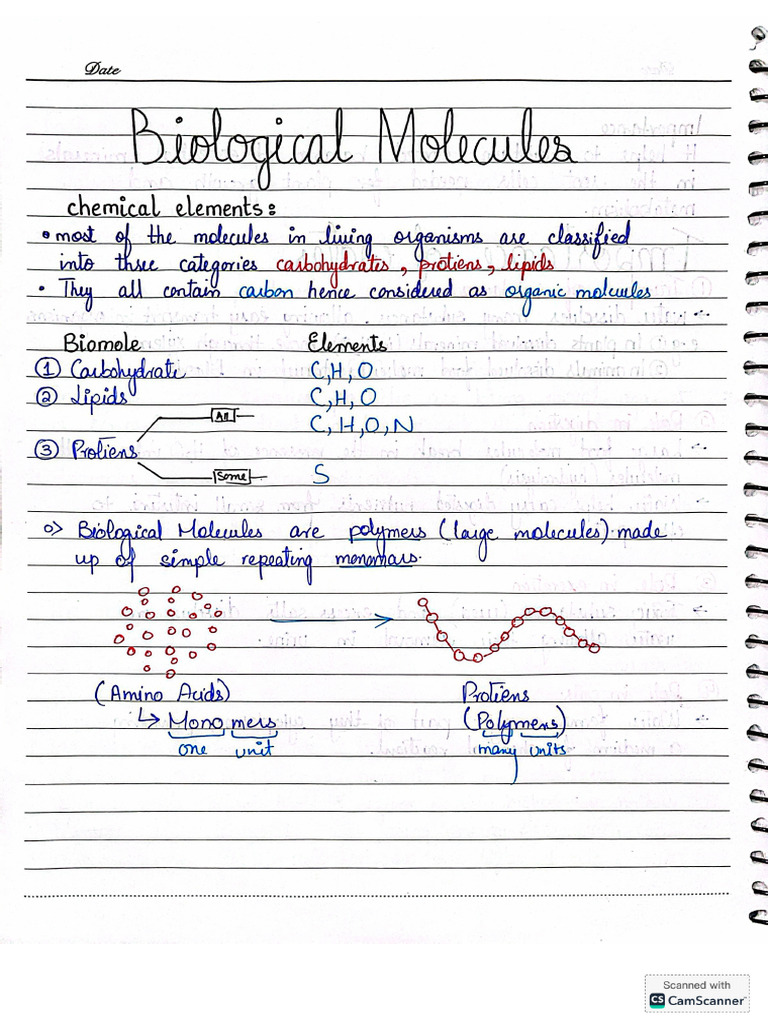 Date
Biological Molecules
chemical elements:
• most of the molecules in living organisms are classified
into three categories carbohydrates, protiens, lipids
• They all contain carbon hence considered as organic molecules
Biomole Elements
① Carbohydrate C,H,O
② Lipids C,H,O
All C,H,O,N
③ Protiens
Some S
o> Biological Molecules are polymers (large molecules) made
up of simple repeating monomars.
(Amino Acids) Protiens
↳ Monomers (Polymers)
one unit many units
Scanned with
CS CamScanner